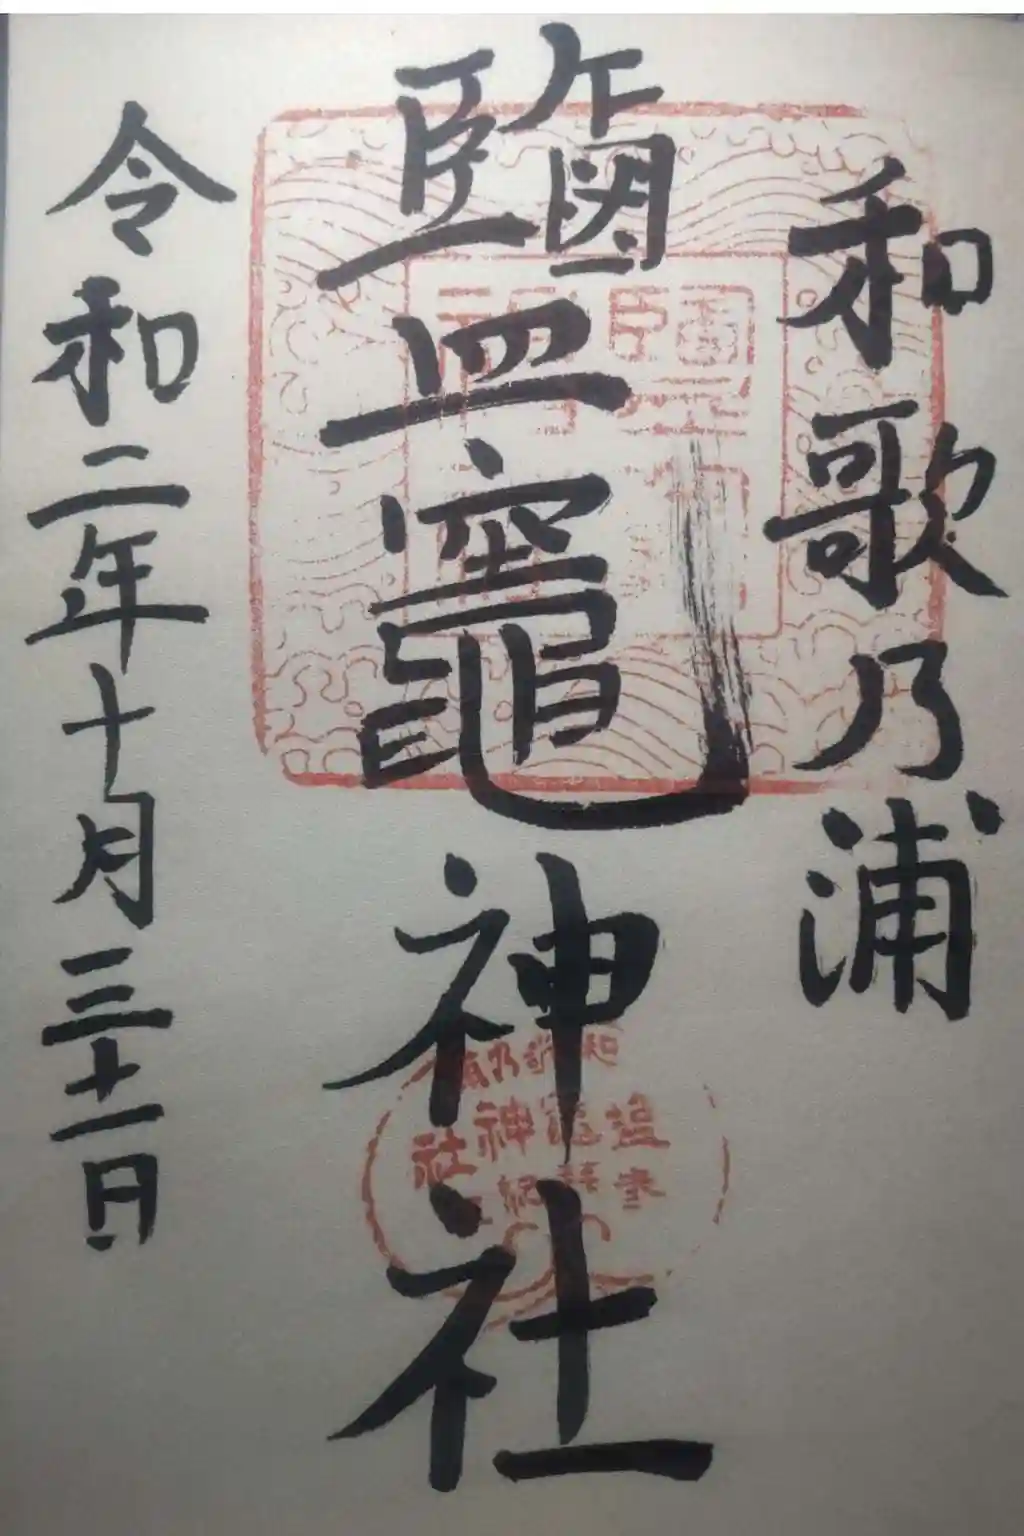 和歌乃浦
鹽竈神社
令和二年十月三十一日
和歌乃浦
塩竈神社
参拝記